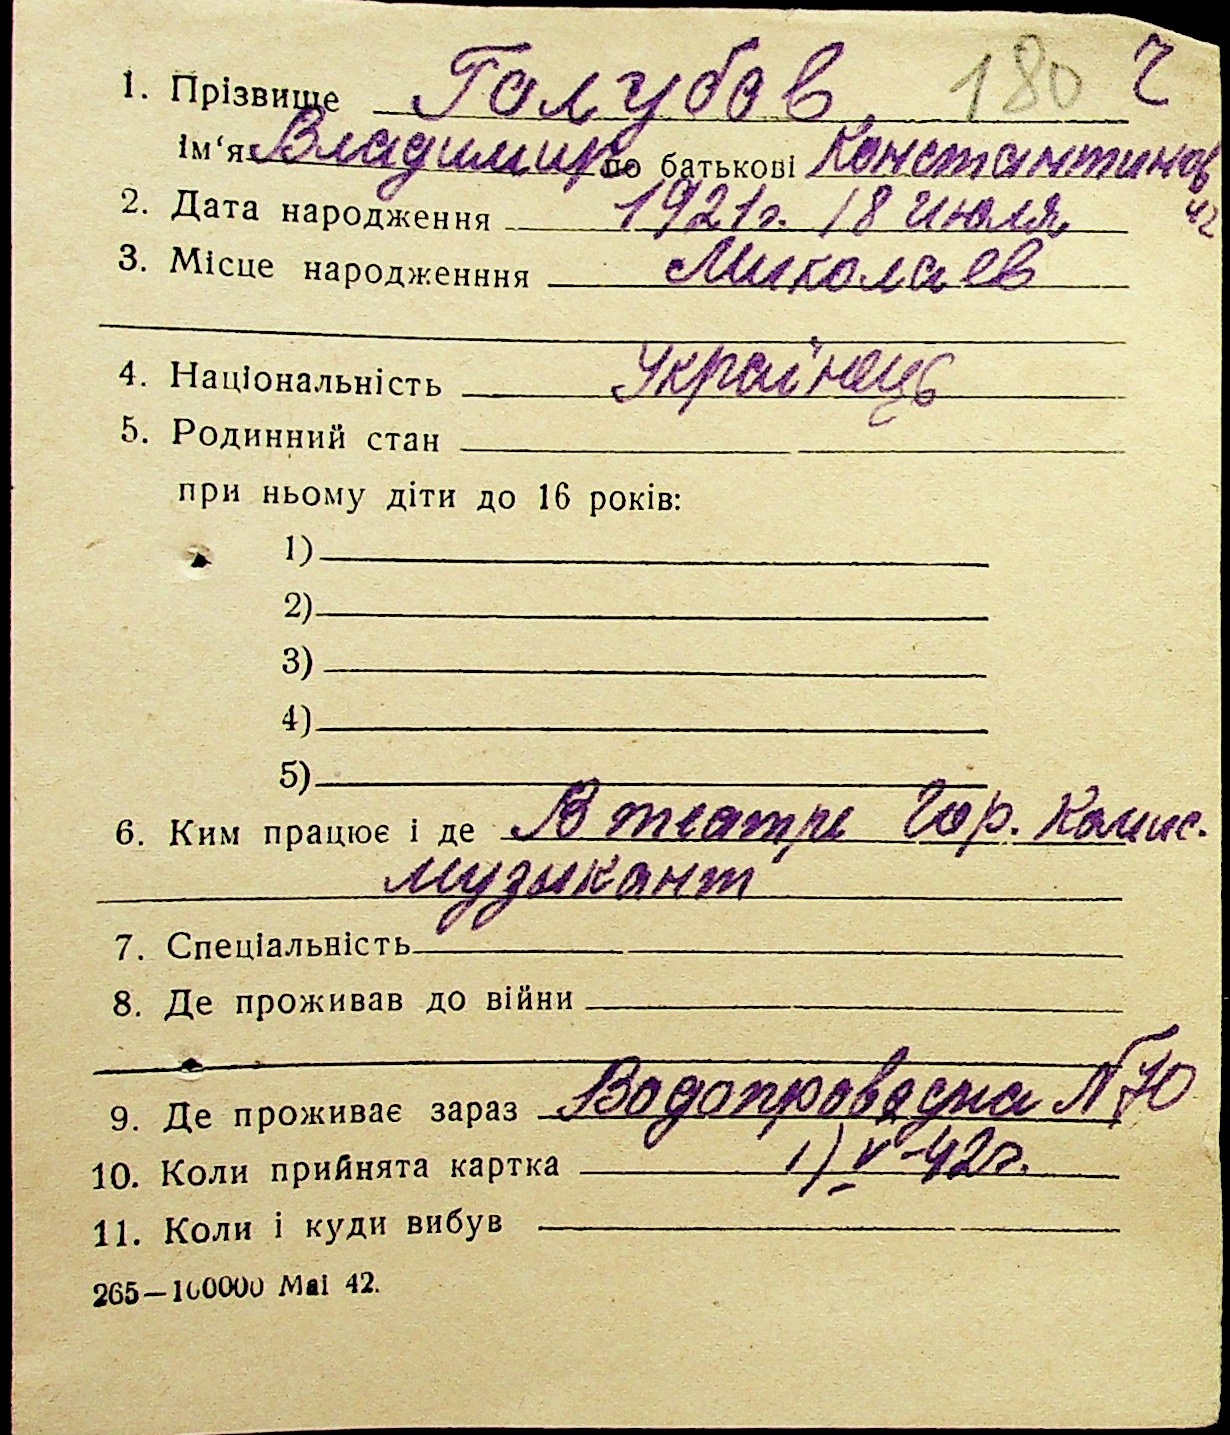 1. Прізвище Голубов 180 Ч
ім'я Владимир по батькові Константинов
ич
2. Дата народження 1921г. 18 июля
3. Місце народженння Миколаев
4. Національність Українець
5. Родинний стан
при ньому діти до 16 років:
1)
2)
3)
4)
5)
6. Ким працює і де В театре Гор. Комис.
музыкант
7. Спеціальність
8. Де проживав до війни
9. Де проживає зараз Водопроводна №70
10. Коли прийнята картка 1)V-42г.
11. Коли і куди вибув
265—100000 Mai 42.